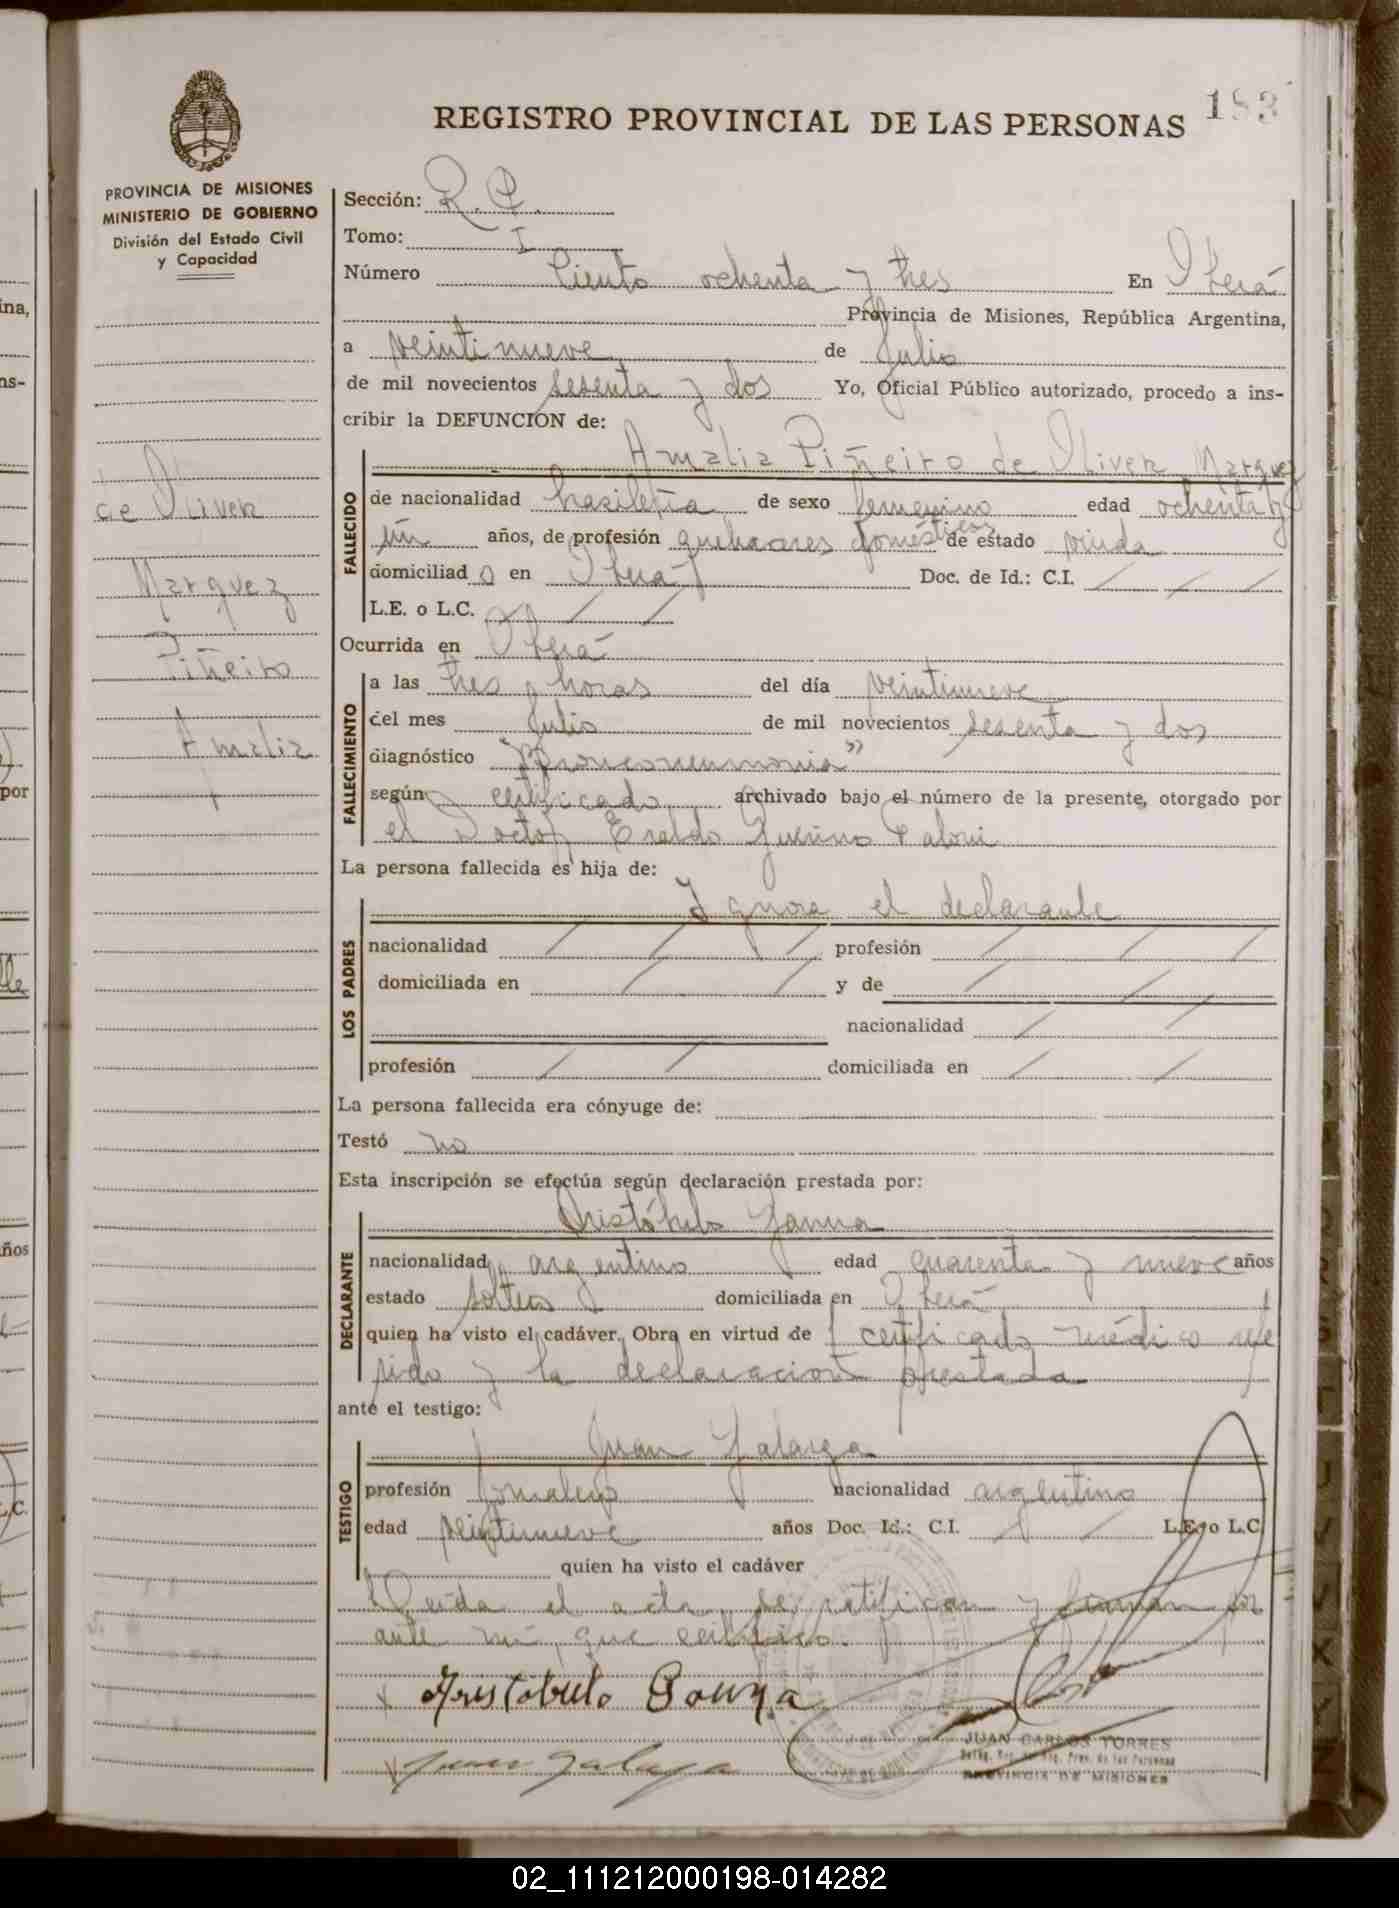 183
REGISTRO PROVINCIAL DE LAS PERSONAS
PROVINCIA DE MISIONES
MINISTERIO DE GOBIERNO
División del Estado Civil
y Capacidad
de Oliver
Marquez
Piñeiro
Amalia
Sección: R.P.
Tomo: I
Número Ciento ochenta y tres En Oberá
Provincia de Misiones, República Argentina,
a veintinueve de Julio
de mil novecientos sesenta y dos Yo, Oficial Público autorizado, procedo a ins-
cribir la DEFUNCION de:
Amalia Piñeiro de Oliver Marquez
FALLECIDO
de nacionalidad brasileña de sexo femenino edad ochenta y
un años, de profesión quehaceres domésticos de estado viuda
domiciliad o en Oberá Doc. de Id.: C.I. / / /
L.E. o L.C. / / /
Ocurrida en Oberá
FALLECIMIENTO
a las tres horas del día veintinueve
del mes Julio de mil novecientos sesenta y dos
diagnóstico "Bronconeumonia"
según certificado archivado bajo el número de la presente, otorgado por
el Doctor
La persona fallecida es hija de:
Ignora el declarante
LOS PADRES
nacionalidad / / / profesión / / /
domiciliada en / / y de / / /
nacionalidad / /
profesión / / domiciliada en / /
La persona fallecida era cónyuge de:
Testó no
Esta inscripción se efectúa según declaración prestada por:
Aristóbulo
DECLARANTE
nacionalidad argentino edad cuarenta y nueve años
estado soltero domiciliada en Oberá
quien ha visto el cadáver. Obra en virtud de certificado médico refe
rido y la declaracion prestada
ante el testigo:
Juan Galarza
TESTIGO
profesión jornalero nacionalidad argentino
edad veintinueve años Doc. Id.: C.I. / / L.E. o L.C.
quien ha visto el cadáver
Leida el acta, se ratifican y firman por
ante mi, que certifico.
Aristobulo
Juan Galarza
JUAN CARLOS TORRES
PROVINCIA DE MISIONES
02_111212000198-014282